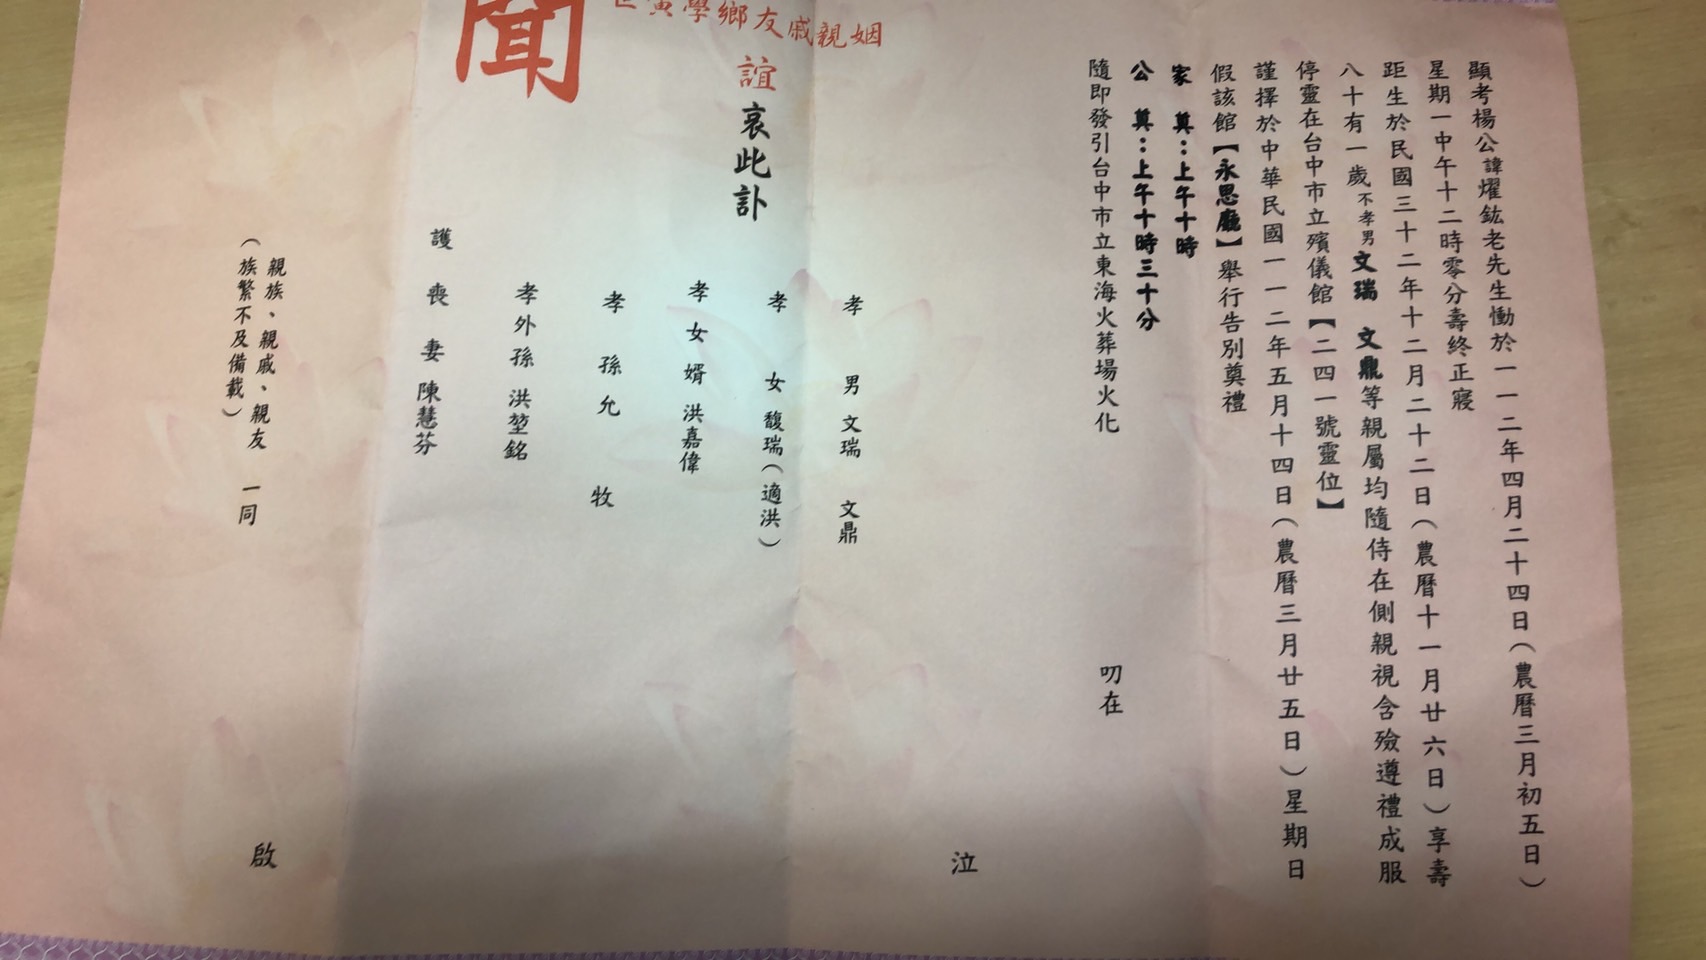 顯考楊公諱燿鈜老先生慟於一一二年四月二十四日（農曆三月初五日）
星期一中午十二時零分壽終正寢
距生於民國三十二年十二月二十二日（農曆十一月廿六日）享壽
八十有一歲不孝男文瑞 文鼎等親屬均隨侍在側親視含殮遵禮成服
停靈在台中市立殯儀館【二四一號靈位】
謹擇於中華民國一一二年五月十四日（農曆三月廿五日）星期日
假該館【永思廳】舉行告別奠禮
家 奠：上午十時
公 奠：上午十時三十分
隨即發引台中市立東海火葬場火化 叨在
泣
姻親戚友鄉學寅世
誼哀此訃
聞
孝男 文瑞 文鼎
孝女 馥瑞（適洪）
孝女婿 洪嘉偉
孝孫 允牧
孝外孫 洪堃銘
護喪妻 陳慧芬
親族、親戚、親友 一同
（族繁不及備載）
啟